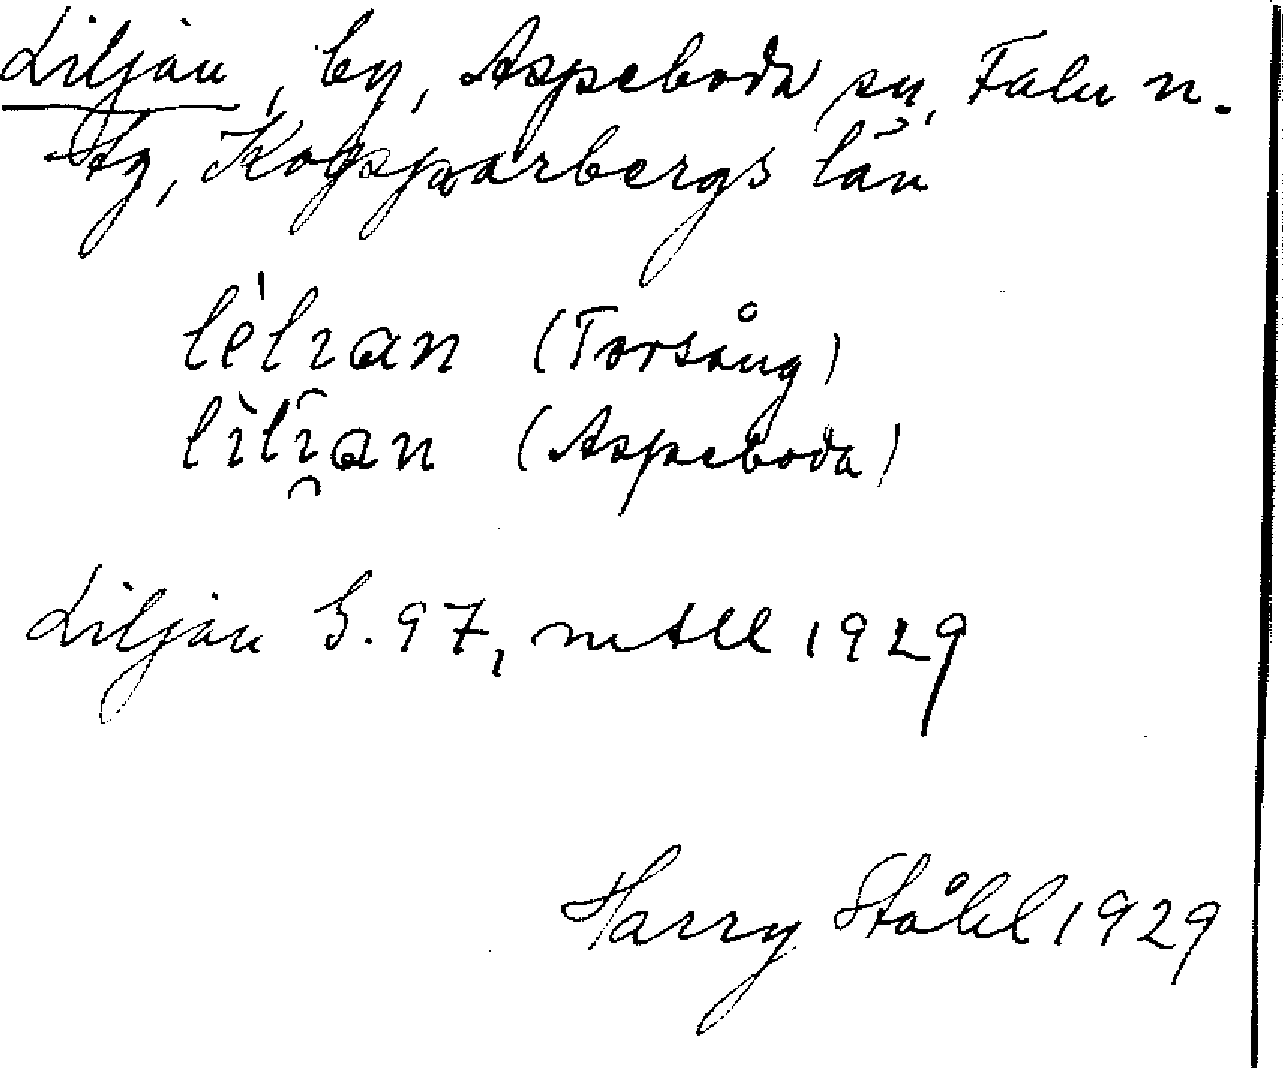 Liljan, by, Aspeboda sn, Falu n.
tg, Kopparbergs län
lèlıan (Torsång)
lìlı̯an (Aspeboda)
Liljan G. 97, mtll 1929
Harry Ståhl 1929